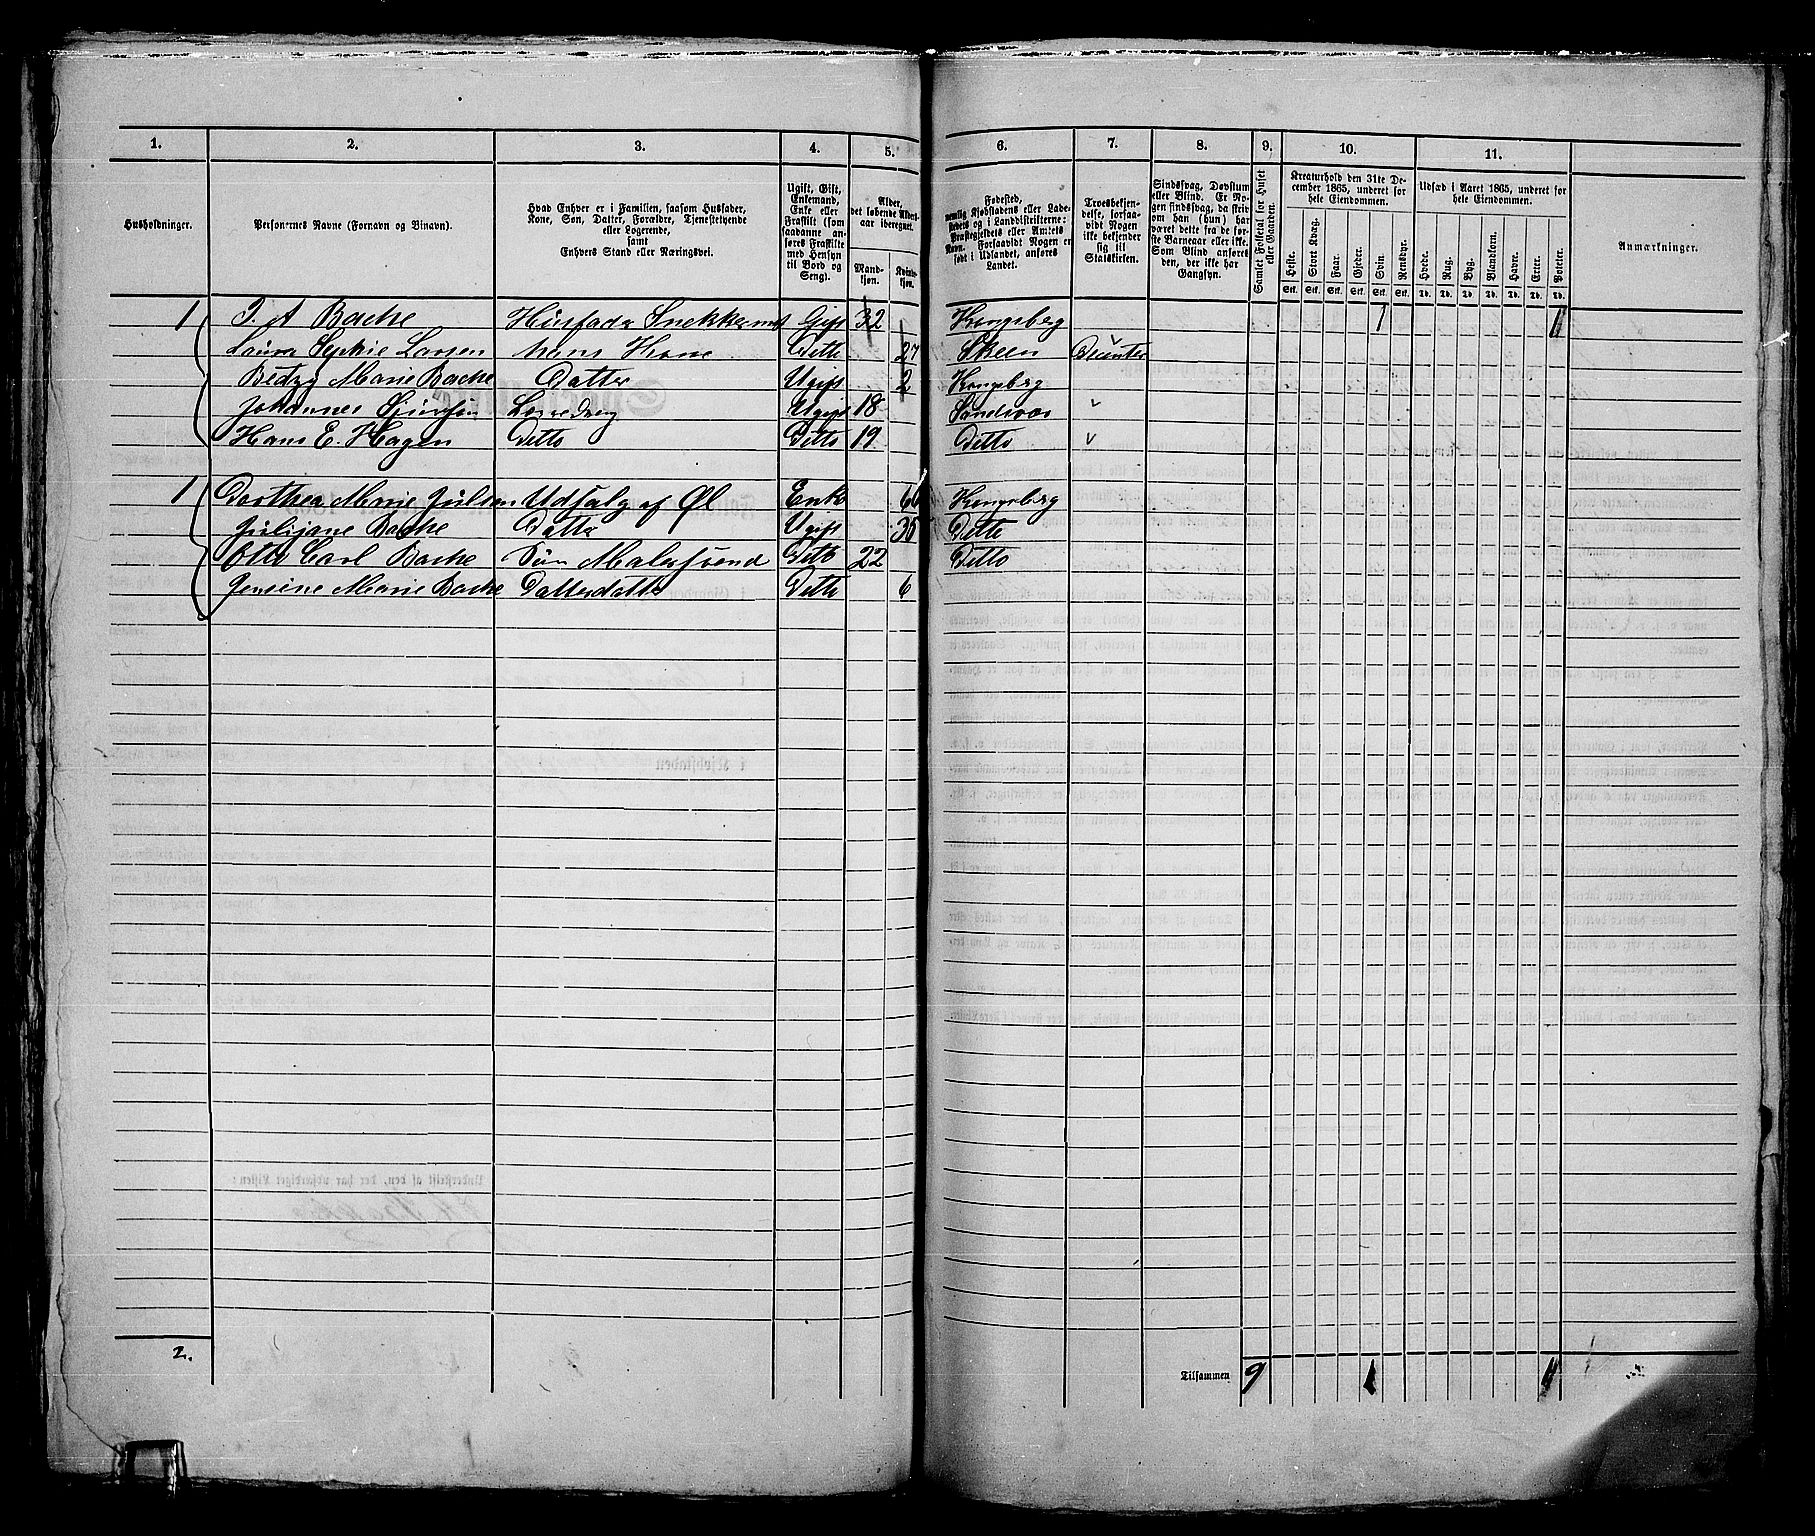 1. 2. 3. 4. 5. 6. 7. 8. 9. 10. 11.
Husholdninger.
Personernes Navne (Fornavn og Binavn).
Hvad Enhver er i Familien, saasom Husfader,
Kone, Søn, Datter, Forældre, Tjenestetyende
eller Logerende,
samt
Enhvers Stand eller Næringsvei.
Ugift, Gift,
Enkemand,
Enke eller
Fraskilt (som
saadanne an-
føres Fraskilte
med Hensyn
til Bord og
Seng).
Alder,
det løbende Alders-
aar iberegnet.
Mand-
kjøn.
Kvinde-
kjøn.
Fødested,
nemlig Kjøbstadens eller Lade-
stedets og i Landdistrikterne:
Præstegjeldets eller Amtets
Navn. Forsaavidt Nogen er
født i Udlandet, anføres
Landet.
Troesbekjen-
delse, forsaa-
vidt Nogen
ikke bekjender
sig til
Statskirken.
Sindssvag, Døvstum
eller Blind. Er No-
gen sindssvag, da skriv
om han (hun) har
været dette fra de før-
ste Barneaar eller ikke.
Som Blind anføres
den, der ikke har
Gangsyn.
Samlet Folketal for Huset
eller Gaarden.
Kreaturhold den 31te De-
cember 1865, underet for
hele Eiendommen.
Heste. Stort Kvæg. Faar. Gjeder. Svin. Rensdyr.
Stk. Stk. Stk. Stk. Stk. Stk.
Udsæd i Aaret 1865, underet for
hele Eiendommen.
Hvede. Rug. Byg. Blandkorn. Havre. Erter. Poteter.
Td. Td. Td. Td. Td. Td. Td.
Anmærkninger.
1 J. A Bache Husfader Gift 32 Kongsberg 1
Laura Sophie Larsen hans Kone Ditto 27 Skeen
Betzy Marie Bache Datter Ugift 2 Kongsberg
Johannes Ugift 18 Sandsvær
Hans E. Hagen Ditto Ditto 19 Ditto
1 Dorthea Marie Julsen Udsalg af Øl Enke Kongsberg
Julijane Bache Datter Ugift 35 Ditto
Otto Carl Bache Søn Malersvend Ditto 22 Ditto
Jensine Marie Bache Datterdatter Ditto 6
2.
Tilsammen 9 1